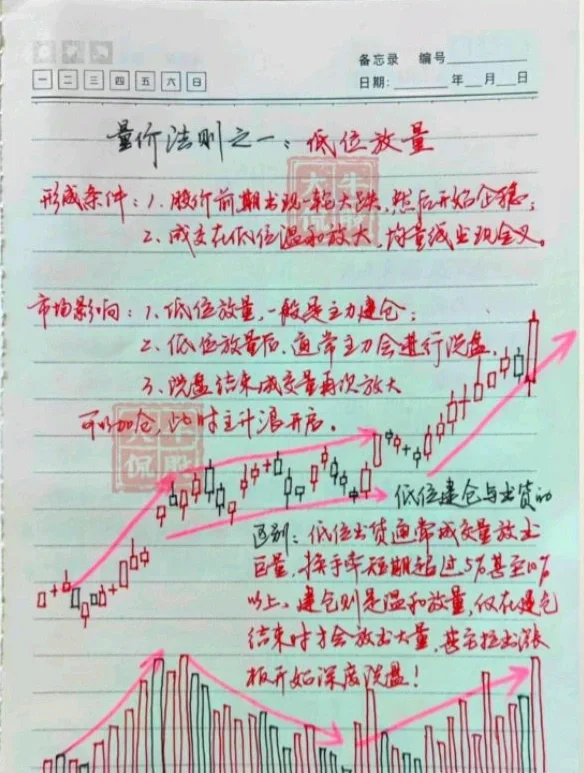 备忘录 编号
一 二 三 四 五 六 日
日期: 年 月 日
量价法则之一:低位放量
形成条件:1、股价前期出现一轮大跌,然后开始企稳;
2、成交在低位温和放大,均量线出现金叉。
市场影响:1、低位放量,一般是主力建仓;
2、低位放量后,通常主力会进行洗盘,
3、洗盘结束成交量再次放大
可以加仓,此时主升浪开启。
低位建仓与出货的
区别:低位出货通常成交量放出
巨量,换手率短期超过5%甚至10%
以上。建仓则是温和放量,仅在建仓
结束时才会放出大量,甚至拉出涨
板开始深度洗盘!
大牛
侃股
大牛
侃股